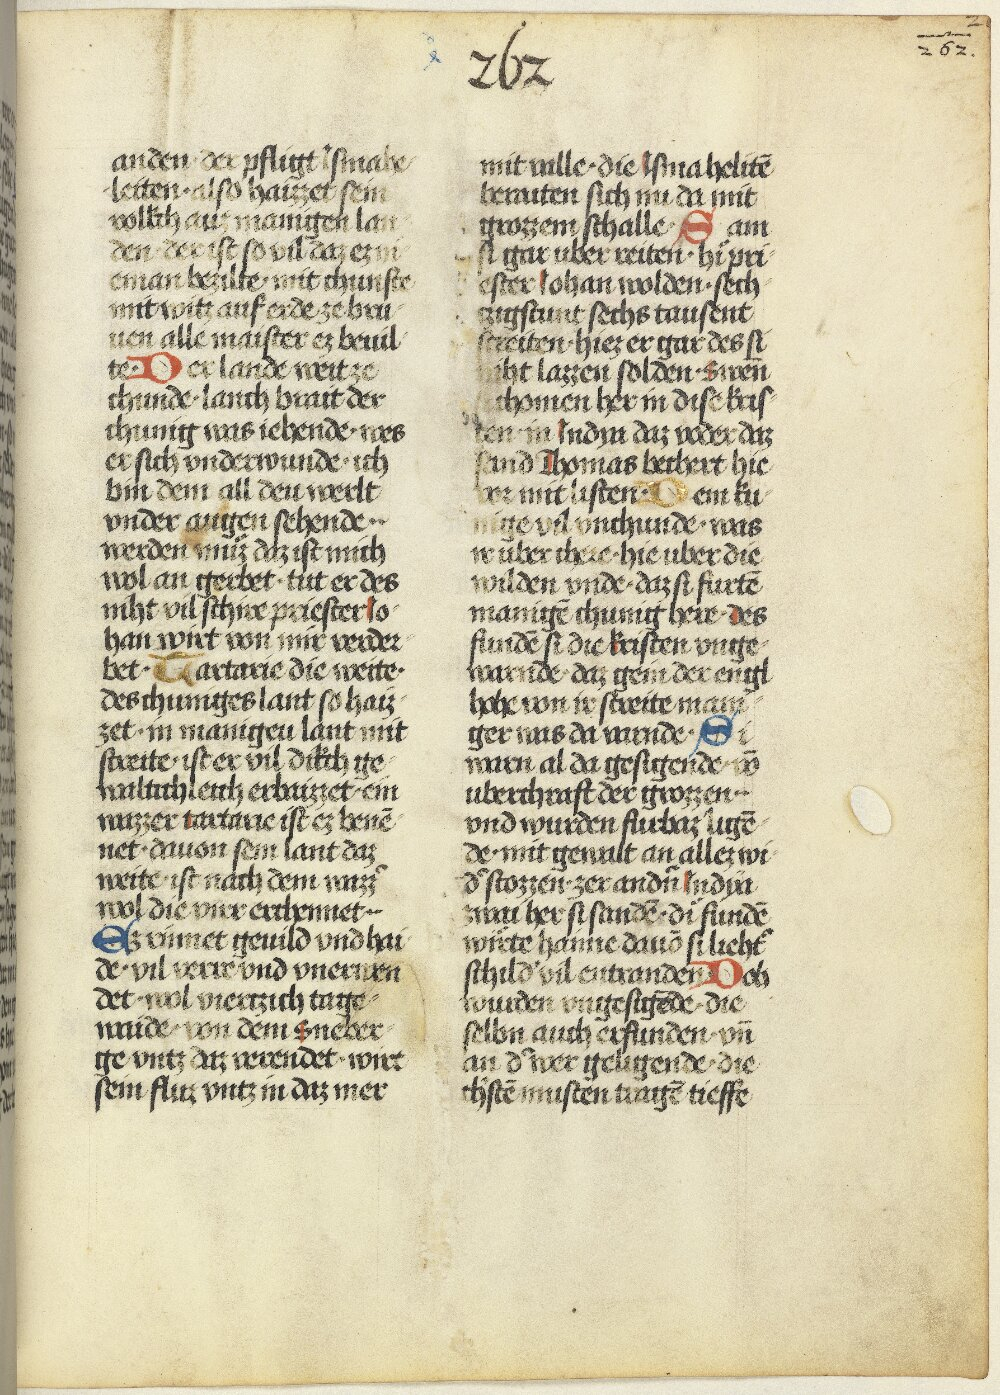 262
262.
anden · der pfligt Ismahe-
leiten · also haizzet sein
volkch auz manigen lan-
den · der ist so vil daz ez ni-
eman bezilte · mit chunste
mit witz auf erde ze bru-
uen alle maister ez beuil-
te · Der lande weit ze
chunde · lauch brait der
chunig was iehende · wes
er sich vnderwunde · ich
bin dem all deu werlt
vnder augen sehende ··
werden muz daz ist mich
wol an gerbet · tut er des
niht vil schire priester Io-
han wirt von mir verder-
bet · Tartarie die weite ·
des chuniges lant so haiz-
zet · in manigeu lant mit
streite · ist er vil dikch ge-
waltichleich erbaizzet · ein
wazzer tartarie ist ez benē-
net · dauon sein lant daz
weite · ist nach dem wazz͛
wol die virr erchennet ··
Ez rinnet geuild vnd hai-
de · vil verre vnd vnerwen-
det · wol viertzich tage-
waide · von dem sneber-
ge vntz daz verendet · wirt
sein fluz vntz in daz mer
mit wille · die Ismahelitē
berauten sich nu da mit
grozzem schalle · Sam
si gar uber reiten · hī pri-
ester Iohan wolden · sech-
zigstunt sechs tausent
streiten · hiez er gar des si
niht lazzen solden · swen̄
chomen her in dise kris-
ten · in Indya daz voder daz
sand Thomas bechert hie
vor mit listen · Dem ku-
nige vil vnchunde · was
ir uber chere · hie uber die
wilden vnde · daz si furtē
manigē chunig here · des
fundē si die kristen vnge-
warnde · daz gein der engl
hohe von ir streite mani-
ger was da varnde · Si
warn al da gesigende · vō
uberchraft der grozzen ··
vnd wurden furbaz ligē-
de · mit gewalt an allez wi-
d͛ stozzen · zer andn̄ Indya
zwai her si sanden · di fundē
wirte haime dauō si lieht͛
schild͛ vil entranden · Doh
wurden vngesigēde · die
selbn auch erfunden · vn̄
an d͛ wer geligende · die
ch͛stē musten tragē tieffe